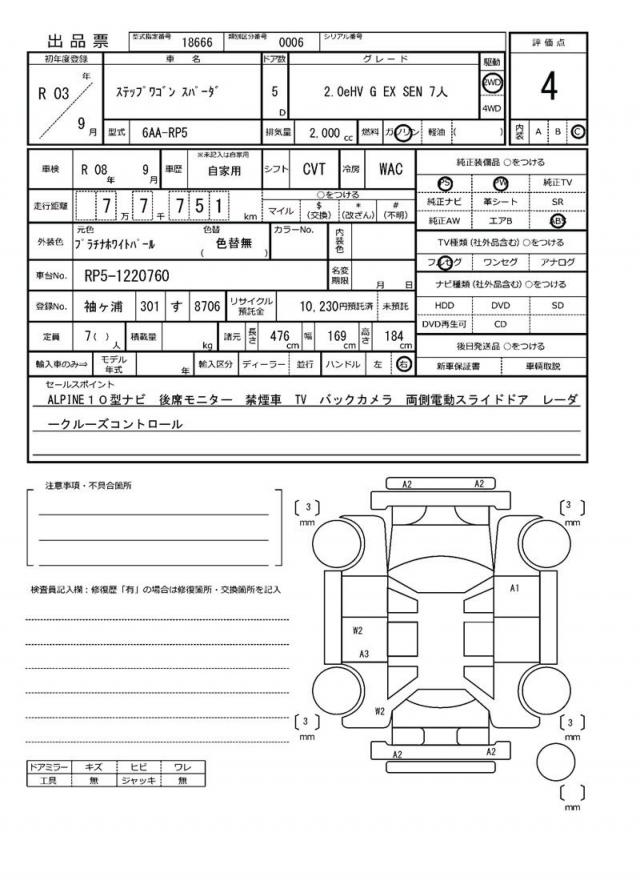 出品票 型式指定番号 18666 類別区分番号 0006 シリアル番号
初年度登録 車名 ドア数 グレード 駆動 評価点
R 03 年 9 月 ステップワゴン スパーダ 5 D 2.0eHV G EX SEN 7人 2WD 4WD 4
型式 6AA-RP5 排気量 2,000 cc 燃料 ガソリン 軽油 ( ) 内装 A B C
車検 R 08 年 9 月 車歴 ※未記入は自家用 自家用 シフト CVT 冷房 WAC
純正装備品 ○をつける
PS PW 純正TV
純正ナビ 革シート SR
純正AW エアB ABS
走行距離 7 7 万 7 千 7 5 1 km ○をつける マイル $ (交換) * (改ざん) # (不明)
TV種類 (社外品含む) ○をつける
フルセグ ワンセグ アナログ
外装色 元色 プラチナホワイトパール 色替 ( 色替無 ) カラーNo. 内装色
車台No. RP5-1220760 名変期限 月 日
ナビ種類 (社外品含む) ○をつける
HDD DVD SD
DVD再生可 CD
登録No. 袖ヶ浦 301 す 8706 リサイクル預託金 10,230円預託済 未預託
定員 7( ) 人 積載量 kg 諸元 長さ 476 cm 幅 169 cm 高さ 184 cm
後日発送品 ○をつける
新車保証書 車輌取説
輸入車のみ⇒ モデル年式 年 輸入区分 ディーラー 並行 ハンドル 左 右
セールスポイント
ALPINE10型ナビ 後席モニター 禁煙車 TV バックカメラ 両側電動スライドドア レーダ
ークルーズコントロール
注意事項・不具合箇所
検査員記入欄：修復歴「有」の場合は修復箇所・交換箇所を記入
A2 A2
3 mm 3 mm
A1
W2
A3
W2
3 mm 3 mm
A2 A2
mm
ドアミラー キズ ヒビ ワレ
工具 無 ジャッキ 無